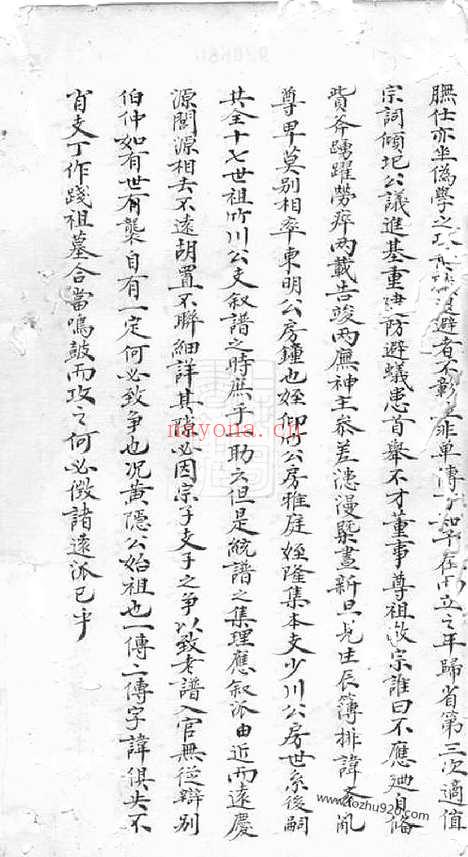 膴仕亦坐偽學之 避者不彰 非單傳 在十立之年歸省第三次適值
宗詞傾圯公議進基重 防避蟻患首舉不才董事尊祖敬宗誰曰不應廼自條
貲斧踴躍勞瘁兩載告竣兩廡神主叅差漶漫槩畫新 生辰簿排諱
尊卑莫別相率東明公房鍾也姪 公房雅庭姪隆集本支少川公房世系後嗣
共全十七世祖竹川公支叙譜之時庶乎助云但是統譜之集理應叙派由近而遠慶
源閣源相去不遠胡置不聯細詳其隙必因宗子支子之爭以致老譜入官無從辯別
伯仲如有世有襲自有一定何必致爭也况黃隱公始祖也一傳二傳字諱俱失不
肖支丁作踐祖墓合當鳴鼓而攻之何必徴諸遠派已乎
nayona.cn
www.fozhu920.com